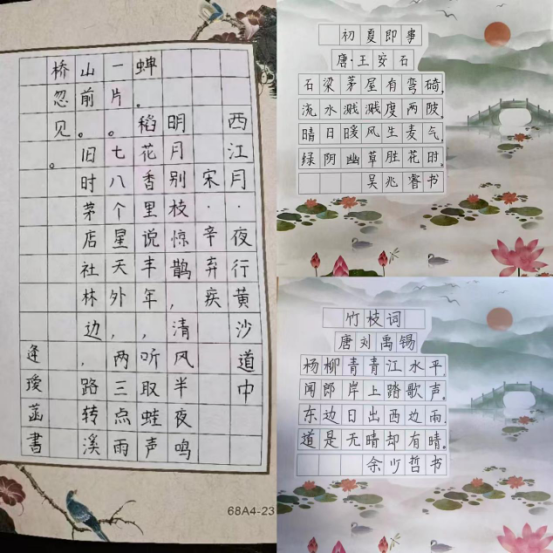 西江月·夜行黄沙道中
宋·辛弃疾
明月别枝惊鹊，清风半夜鸣
蝉。稻花香里说丰年，听取蛙声
一片。七八个星天外，两三点雨
山前。旧时茅店社林边，路转溪
桥忽见。
瑷菡書
68A4-23
初夏即事
唐·王安石
石梁茅屋有弯碕，
流水溅溅度两陂。
晴日暖风生麦气，
绿阴幽草胜花时。
吴兆睿书
竹枝词
唐刘禹锡
杨柳青青江水平，
闻郎岸上踏歌声。
东边日出西边雨，
道是无晴却有晴。
余少哲书